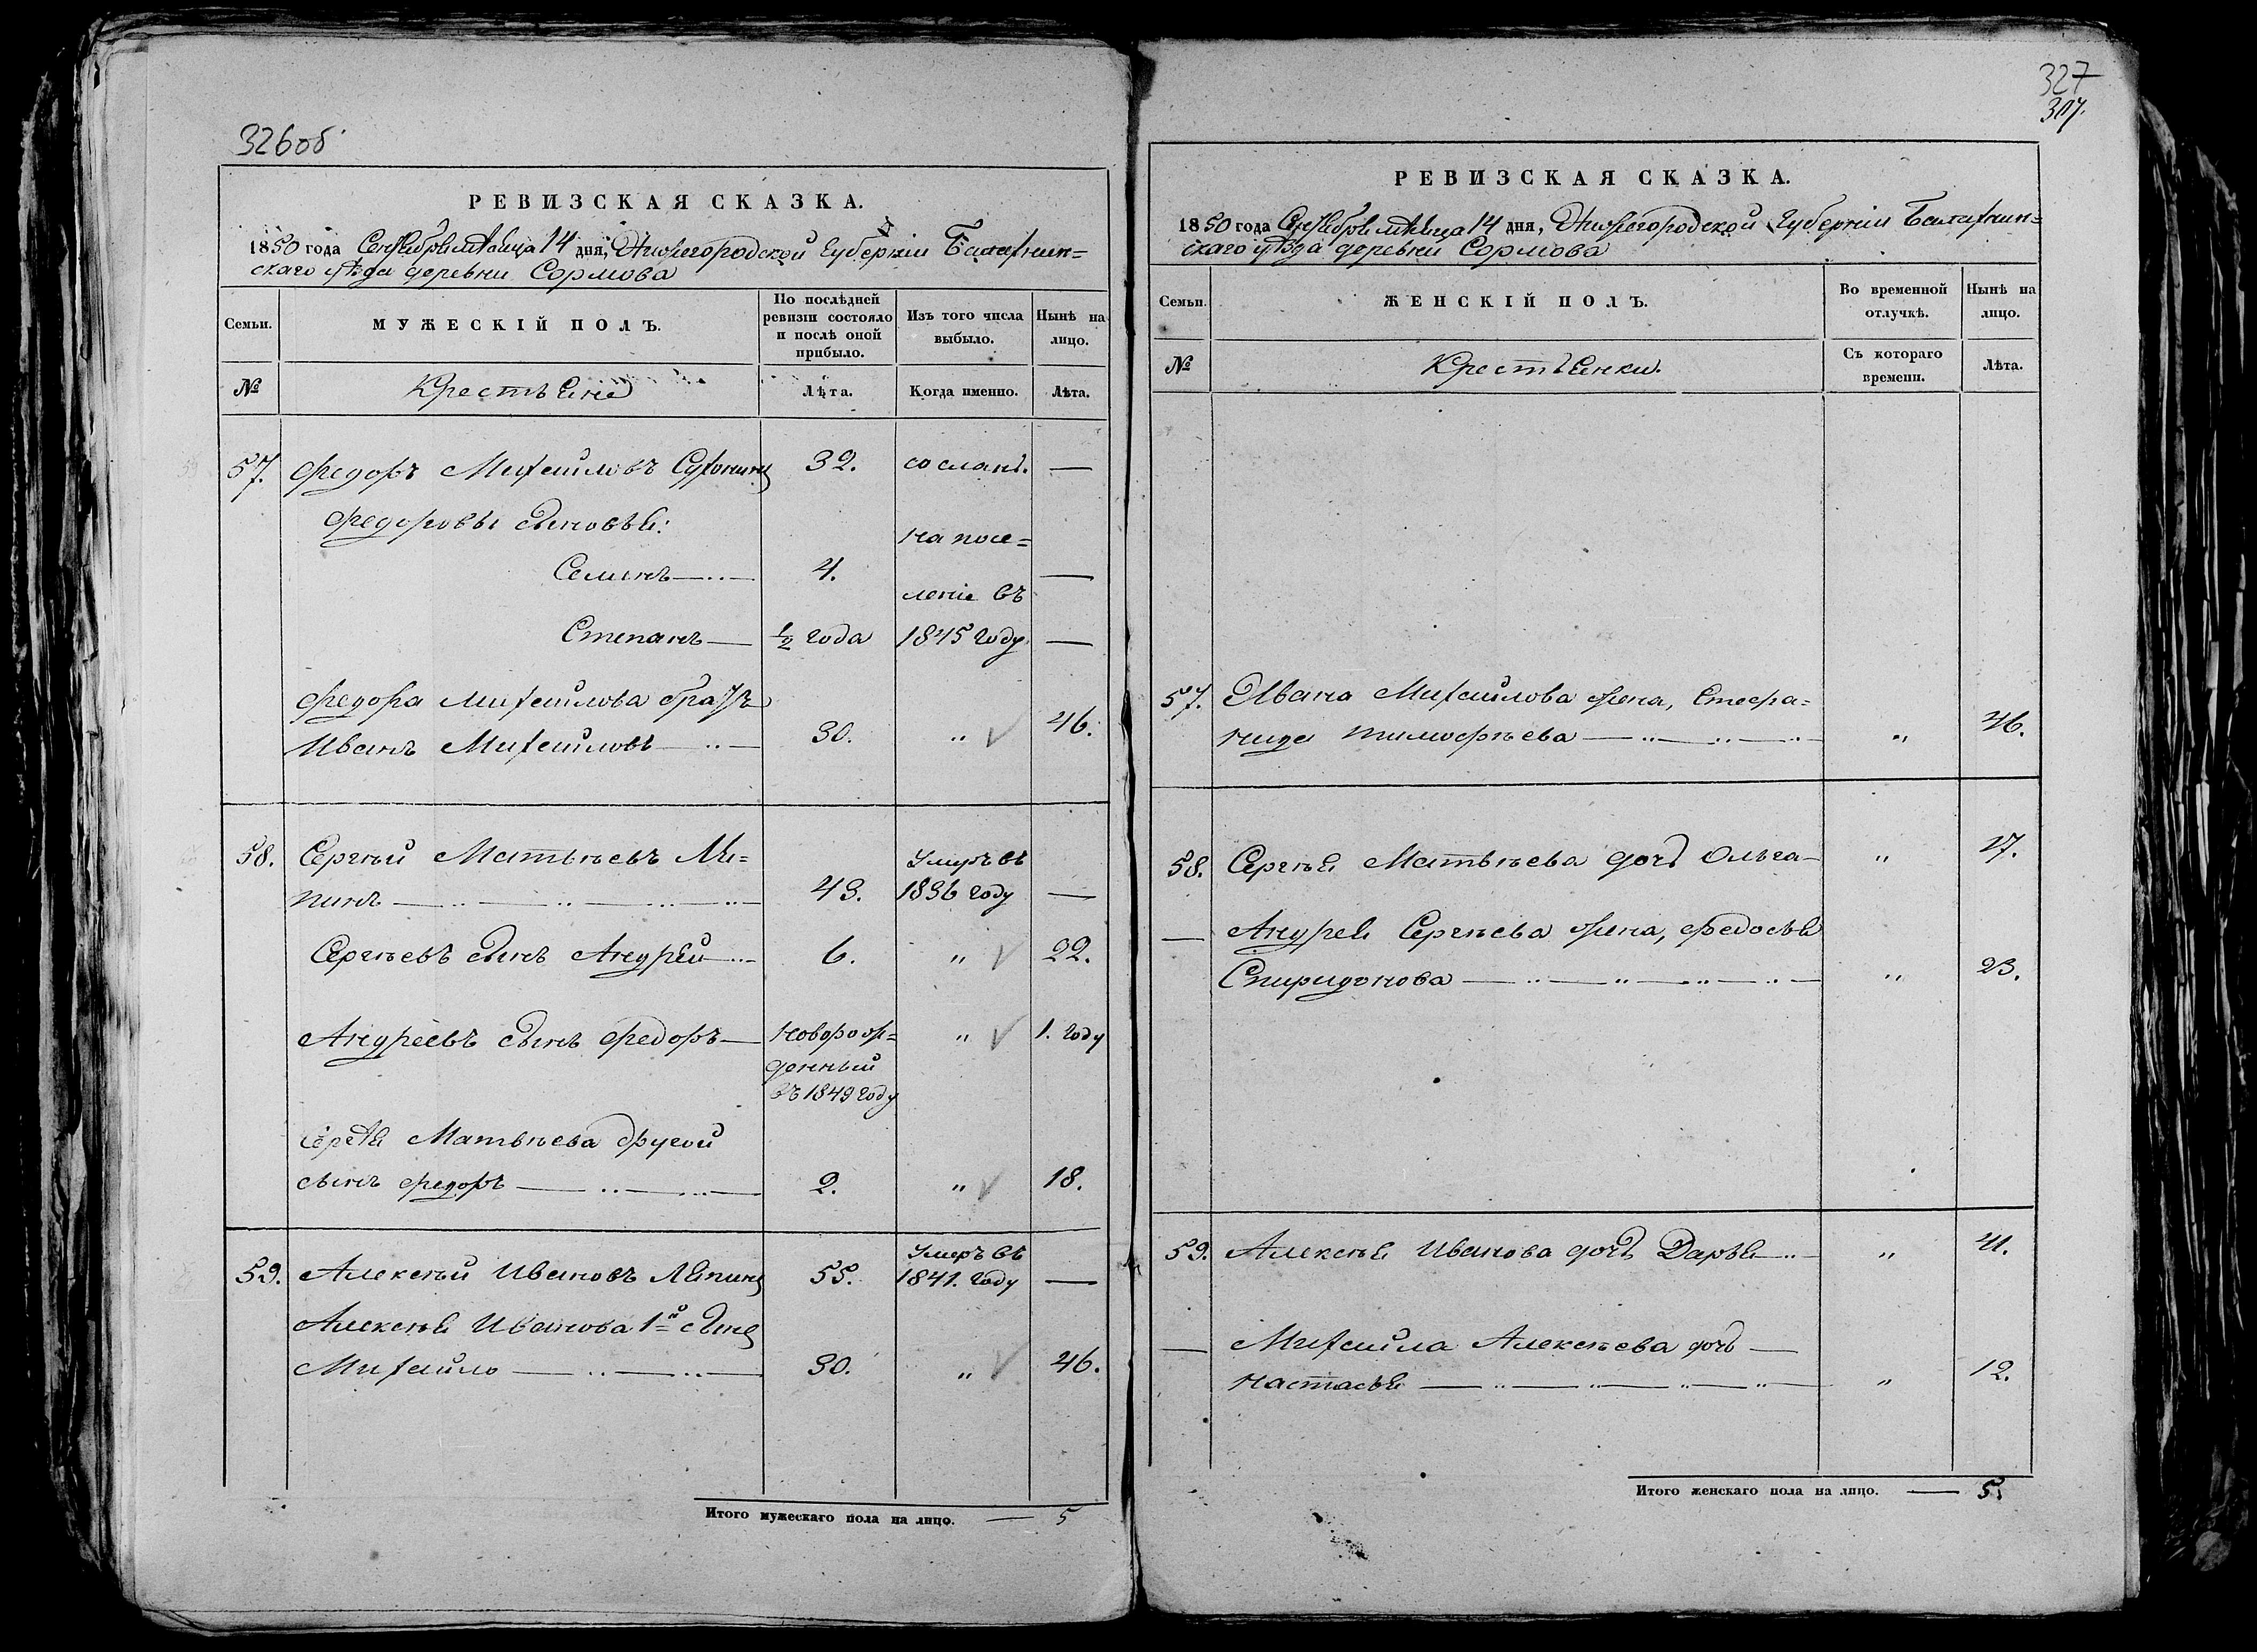 326об
РЕВИЗСКАЯ СКАЗКА.
1850 года Сентября мѣсяца 14 дня, Нижегородской Губерніи Балахнин=
скаго уѣзда деревни Сормова
Семьи.
МУЖЕСКІЙ ПОЛЪ.
По послѣдней
ревизіи состояло
и послѣ оной
прибыло.
Изъ того числа
выбыло.
Нынѣ на
лицо.
№
Крестьяне
Лѣта.
Когда именно.
Лѣта.
57. Федоръ Михайловъ 32. сосланъ. —
Федоровы сыновья:
на посе=
Семенъ 4. —
леніе въ
Степанъ — ½ года 1845 году. —
Федора Михайлова братъ
Иванъ Михайловъ 30. „ 46.
58. Сергѣй Матвѣевъ Ля=
пинъ 43. Умеръ въ 1836 году —
Сергѣевъ сынъ Андрей 6. „ 22.
Андреевъ сынъ Федоръ — новорож= „ 1. году
денный
въ 1849 году
Сергѣя Матвѣева другой
сынъ Федоръ 2. „ 18.
59. Алексѣй Ивановъ Ляпинъ 55. Умеръ въ 1841. году —
Алексѣя Иванова 1й сынъ
Михайло 30. „ 46.
Итого мужескаго пола на лицо. — 5
327
317.
РЕВИЗСКАЯ СКАЗКА.
1850 года Сентября мѣсяца 14 дня, Нижегородской Губерніи Балахнин=
скаго уѣзда деревни Сормова
Семьи.
ЖЕНСКІЙ ПОЛЪ.
Во временной
отлучкѣ.
Нынѣ на
лицо.
№
Крестьянки.
Съ котораго
времени.
Лѣта.
57. Ивана Михайлова жена, Стефа=
нида Тимофѣева „ 46.
58. Сергѣя Матвѣева дочь Ольга — „ 17.
— Андрея Сергѣева жена, Федосья
Спиридонова „ 23.
59. Алексѣя Иванова дочь Дарья „
— Михайла Алексѣева дочь —
Настасья „ 12.
Итого женскаго пола на лицо. — 5.